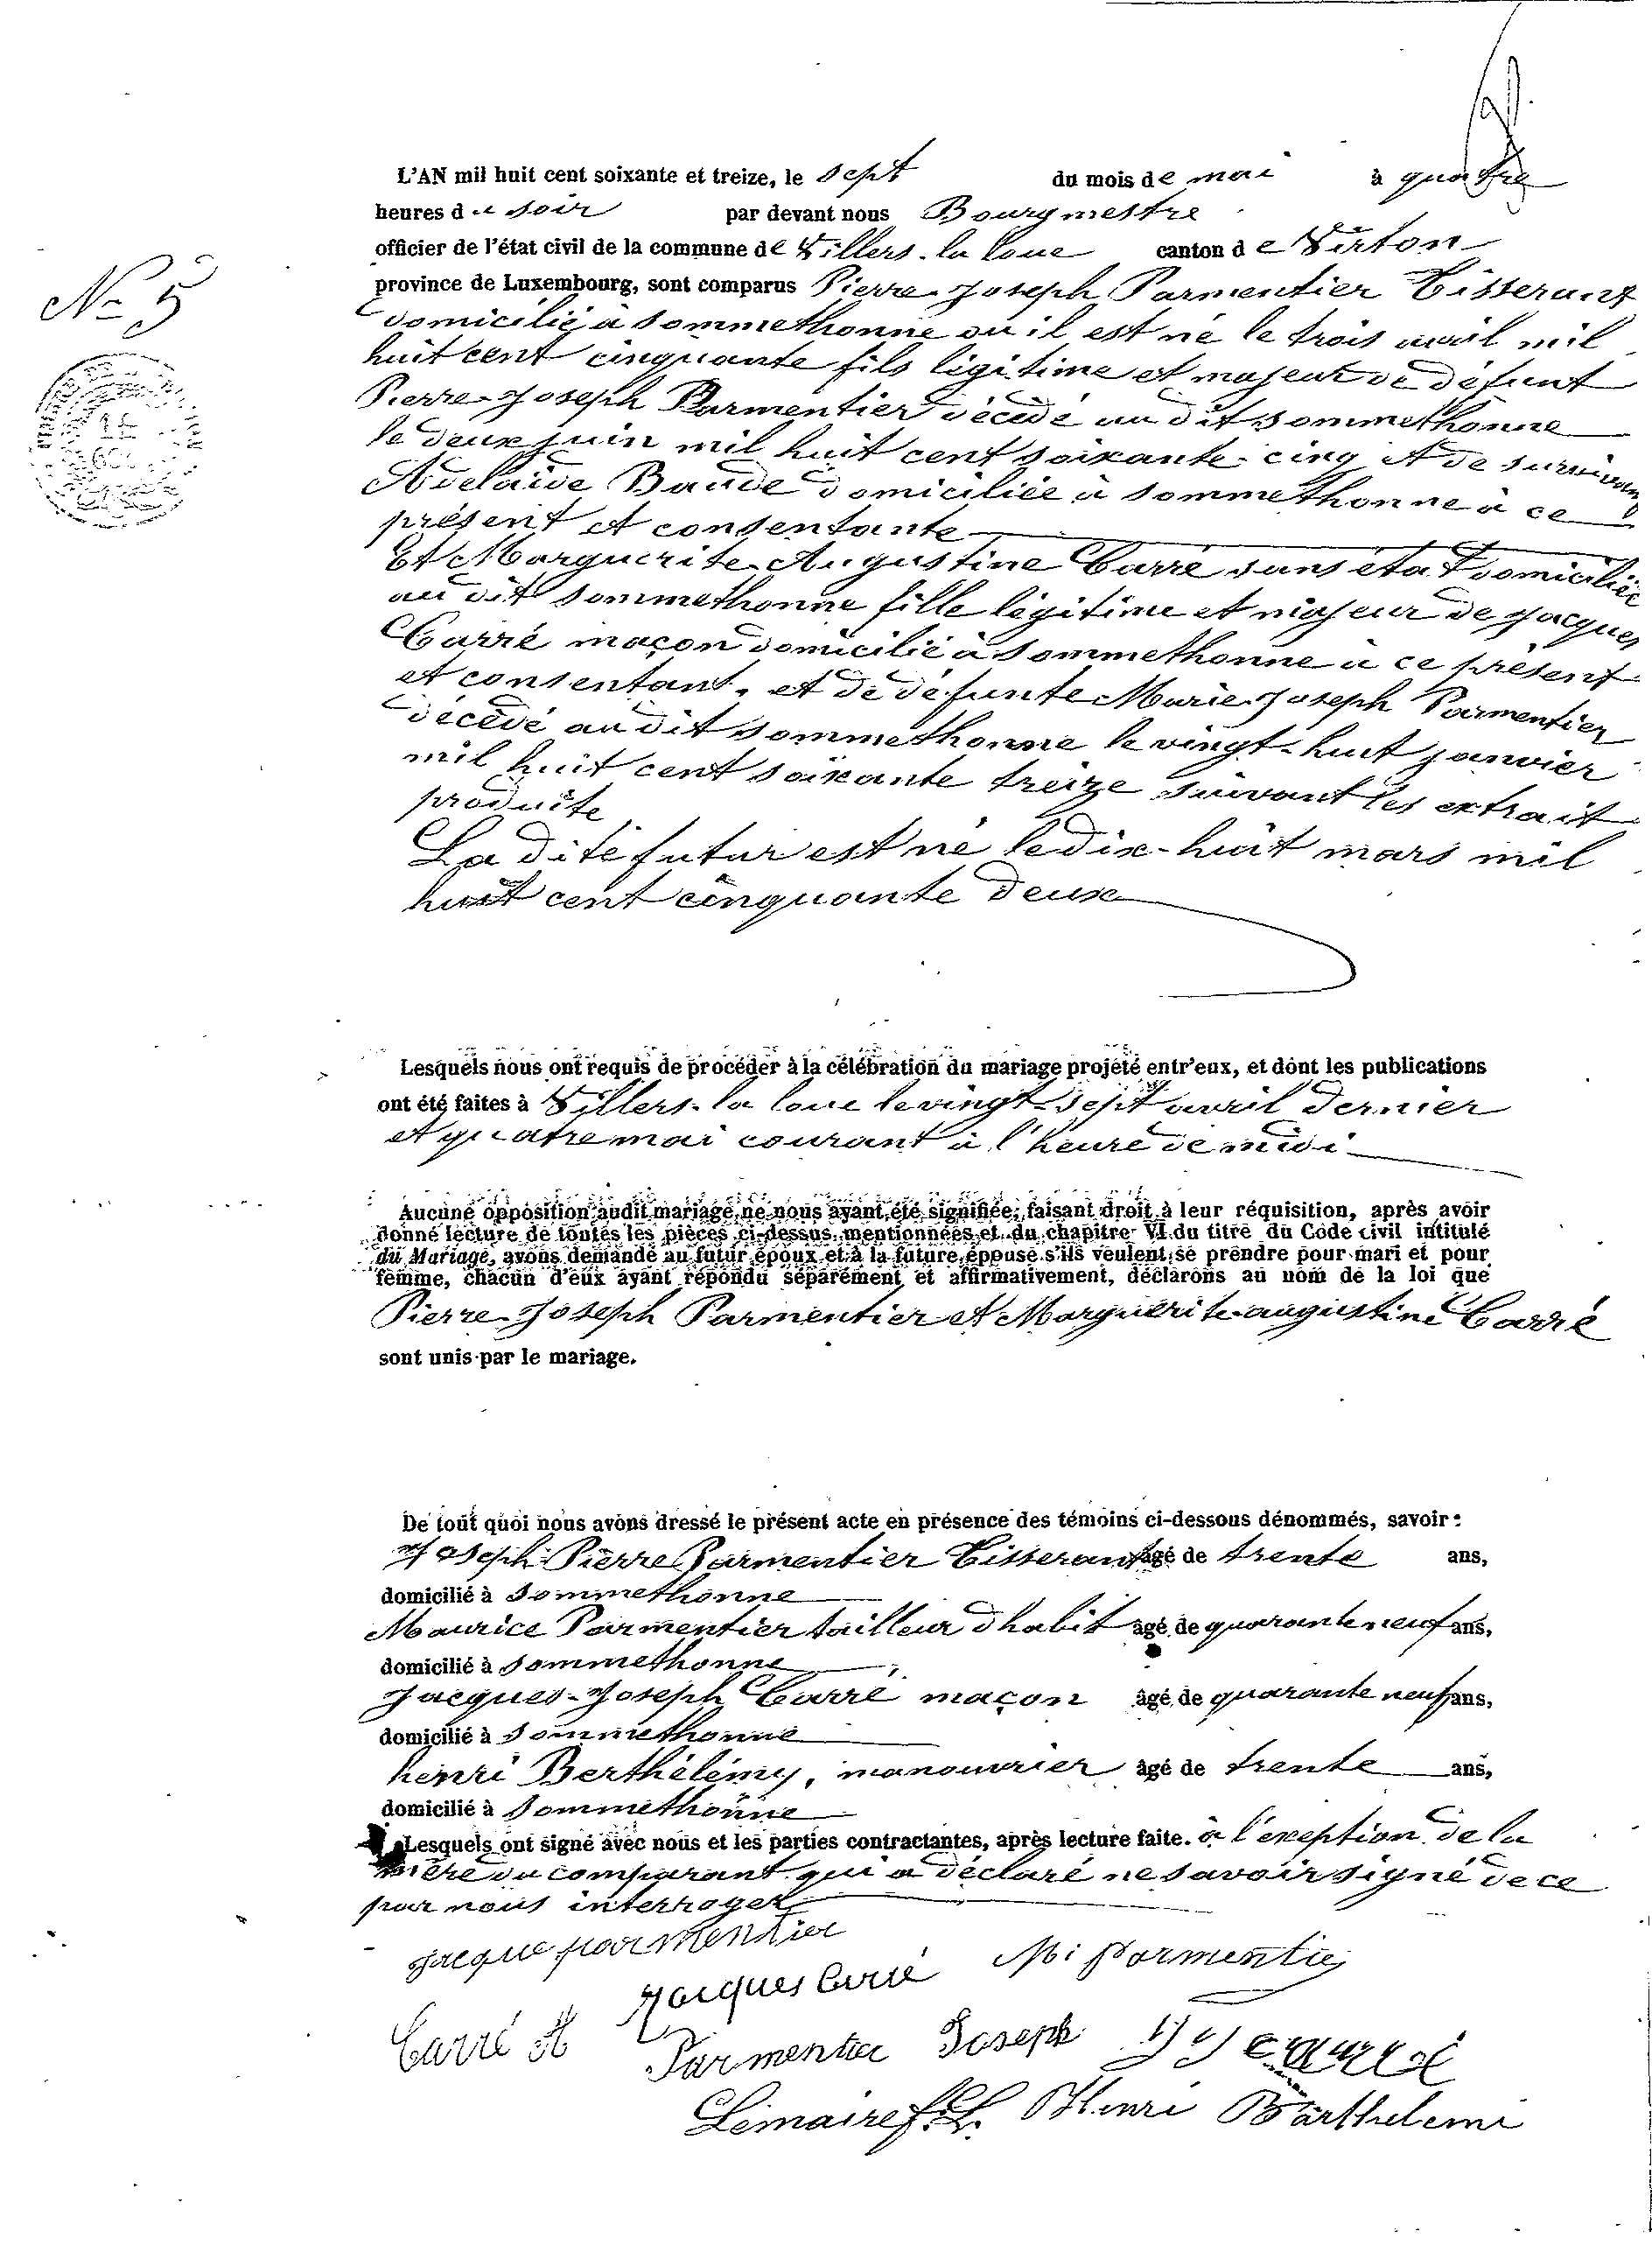 L'AN mil huit cent soixante et treize, le sept du mois de mai à quatre
heures du soir par devant nous Bourgmestre
officier de l'état civil de la commune de Villers-la loue canton de Virton
province de Luxembourg, sont comparus Pierre-Joseph Parmentier Tisserant
domicilié à sommethonne ou il est né le trois avril mil
N° 5
huit cent cinquante fils légitime et majeur de défunt
Pierre-Joseph Parmentier décédé au dit sommethonne
le deux juin mil huit cent soixante-cinq et de survivan
Adelaïde Baude domiciliée à sommethonne à ce
présent et consentante
Et Marguerite Augustine Carré sans état domiciliée
au dit sommethonne fille légitime et majeur de Jacques
Carré maçon domicilié à sommethonne à ce présent
et consentant, et de défunte Marie-Joseph Parmentier
décédé au dit sommethonne le vingt-huit janvier
mil huit cent soixante treize suivant les extrait
produite
La dite futur est né le dix-huit mars mil
huit cent cinquante deux
Lesquels nous ont requis de procéder à la célébration du mariage projeté entr'eux, et dont les publications
ont été faites à Villers-la loue le vingt-sept avril dernier
et quatre mai courant à l'heure de midi
Aucune opposition audit mariage ne nous ayant été signifiée; faisant droit à leur réquisition, après avoir
donné lecture de toutes les pièces ci-dessus mentionnées et du chapitre VI du titre du Code civil intitulé
du Mariage, avons demandé au futur époux et à la future épouse s'ils veulent se prendre pour mari et pour
femme, chacun d'eux ayant répondu séparément et affirmativement, déclarons au nom de la loi que
Pierre-Joseph Parmentier et Marguerite augustine Carré
sont unis par le mariage.
De tout quoi nous avons dressé le présent acte en présence des témoins ci-dessous dénommés, savoir:
Joseph Pierre Parmentier Tisserant âgé de trente ans,
domicilié à sommethonne
Maurice Parmentier tailleur d'habit âgé de quarante neuf ans,
domicilié à sommethonne
Jacques-Joseph Carré maçon âgé de quarante neuf ans,
domicilié à sommethonne
henri Berthélémy, manouvrier âgé de trente ans,
domicilié à sommethonne
Lesquels ont signé avec nous et les parties contractantes, après lecture faite. à l'exeption de la
mère du comparant qui a déclaré ne savoir signé de ce
par nous interroger
jacque parmentier
Jacques Carré M: Parmentier
Carré A Parmentier Joseph JJ Carré
Lemaire f.L. Henri Barthelemi